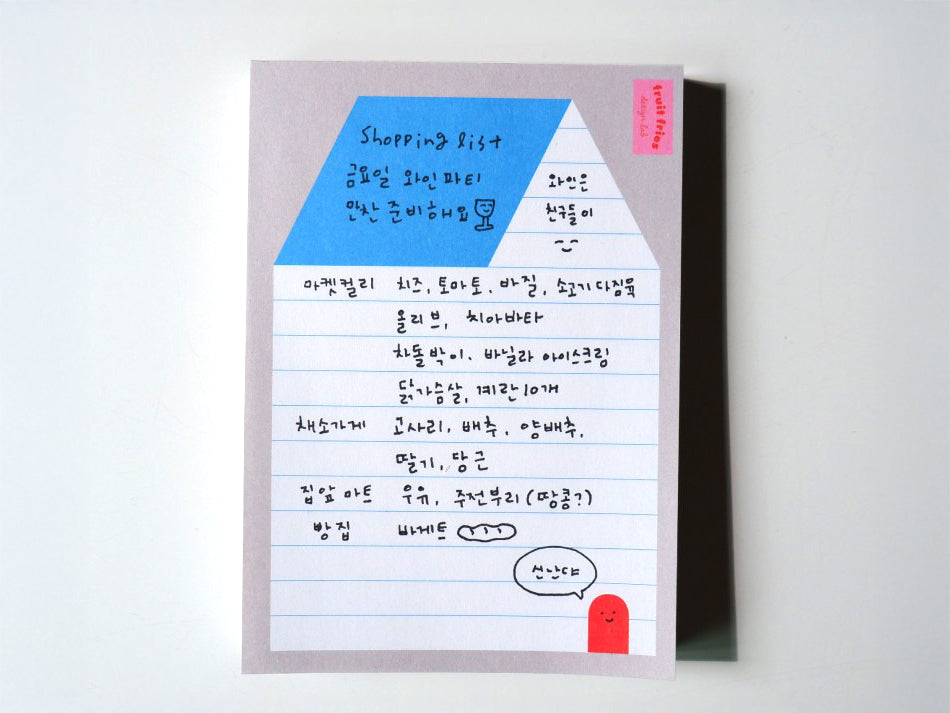 fruit fries
design lab
Shopping list
금요일 와인파티
만찬 준비해요
와인은
친구들이
마켓컬리 치즈, 토마토, 바질, 소고기다짐육
올리브, 치아바타
차돌박이, 바닐라 아이스크림
닭가슴살, 계란10개
채소가게 고사리, 배추, 양배추,
딸기, 당근
집앞마트 우유, 주전부리(땅콩?)
빵집 바게트
신난다